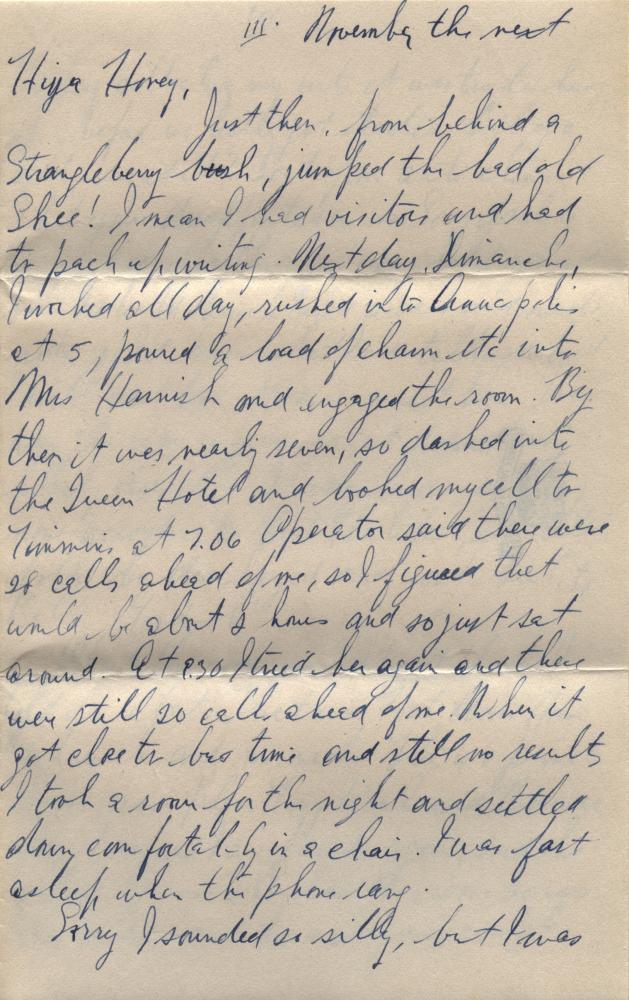 III. November the next
Hiya Honey,
Just then, from behind a
Strangleberry bush, jumped the bad old
Shee! I mean I had visitors and had
to pack up writing. Next day, Dimanche,
I worked all day, rushed into Annapolis
at 5, poured a load of charm etc into
Mrs Harnish and engaged the room. By
then it was nearly seven, so dashed into
the Queen Hotel and booked my call to
Timmins at 7.06 Operator said there were
28 calls ahead of me, so I figured that
would be about 2 hours and so just sat
around. At 8.30 I tried her again and there
were still 20 calls ahead of me. When it
got close to bus time and still no results
I took a room for the night and settled
down comfortably in a chair. I was fast
asleep when the phone rang.
Sorry I sounded so silly, but I was